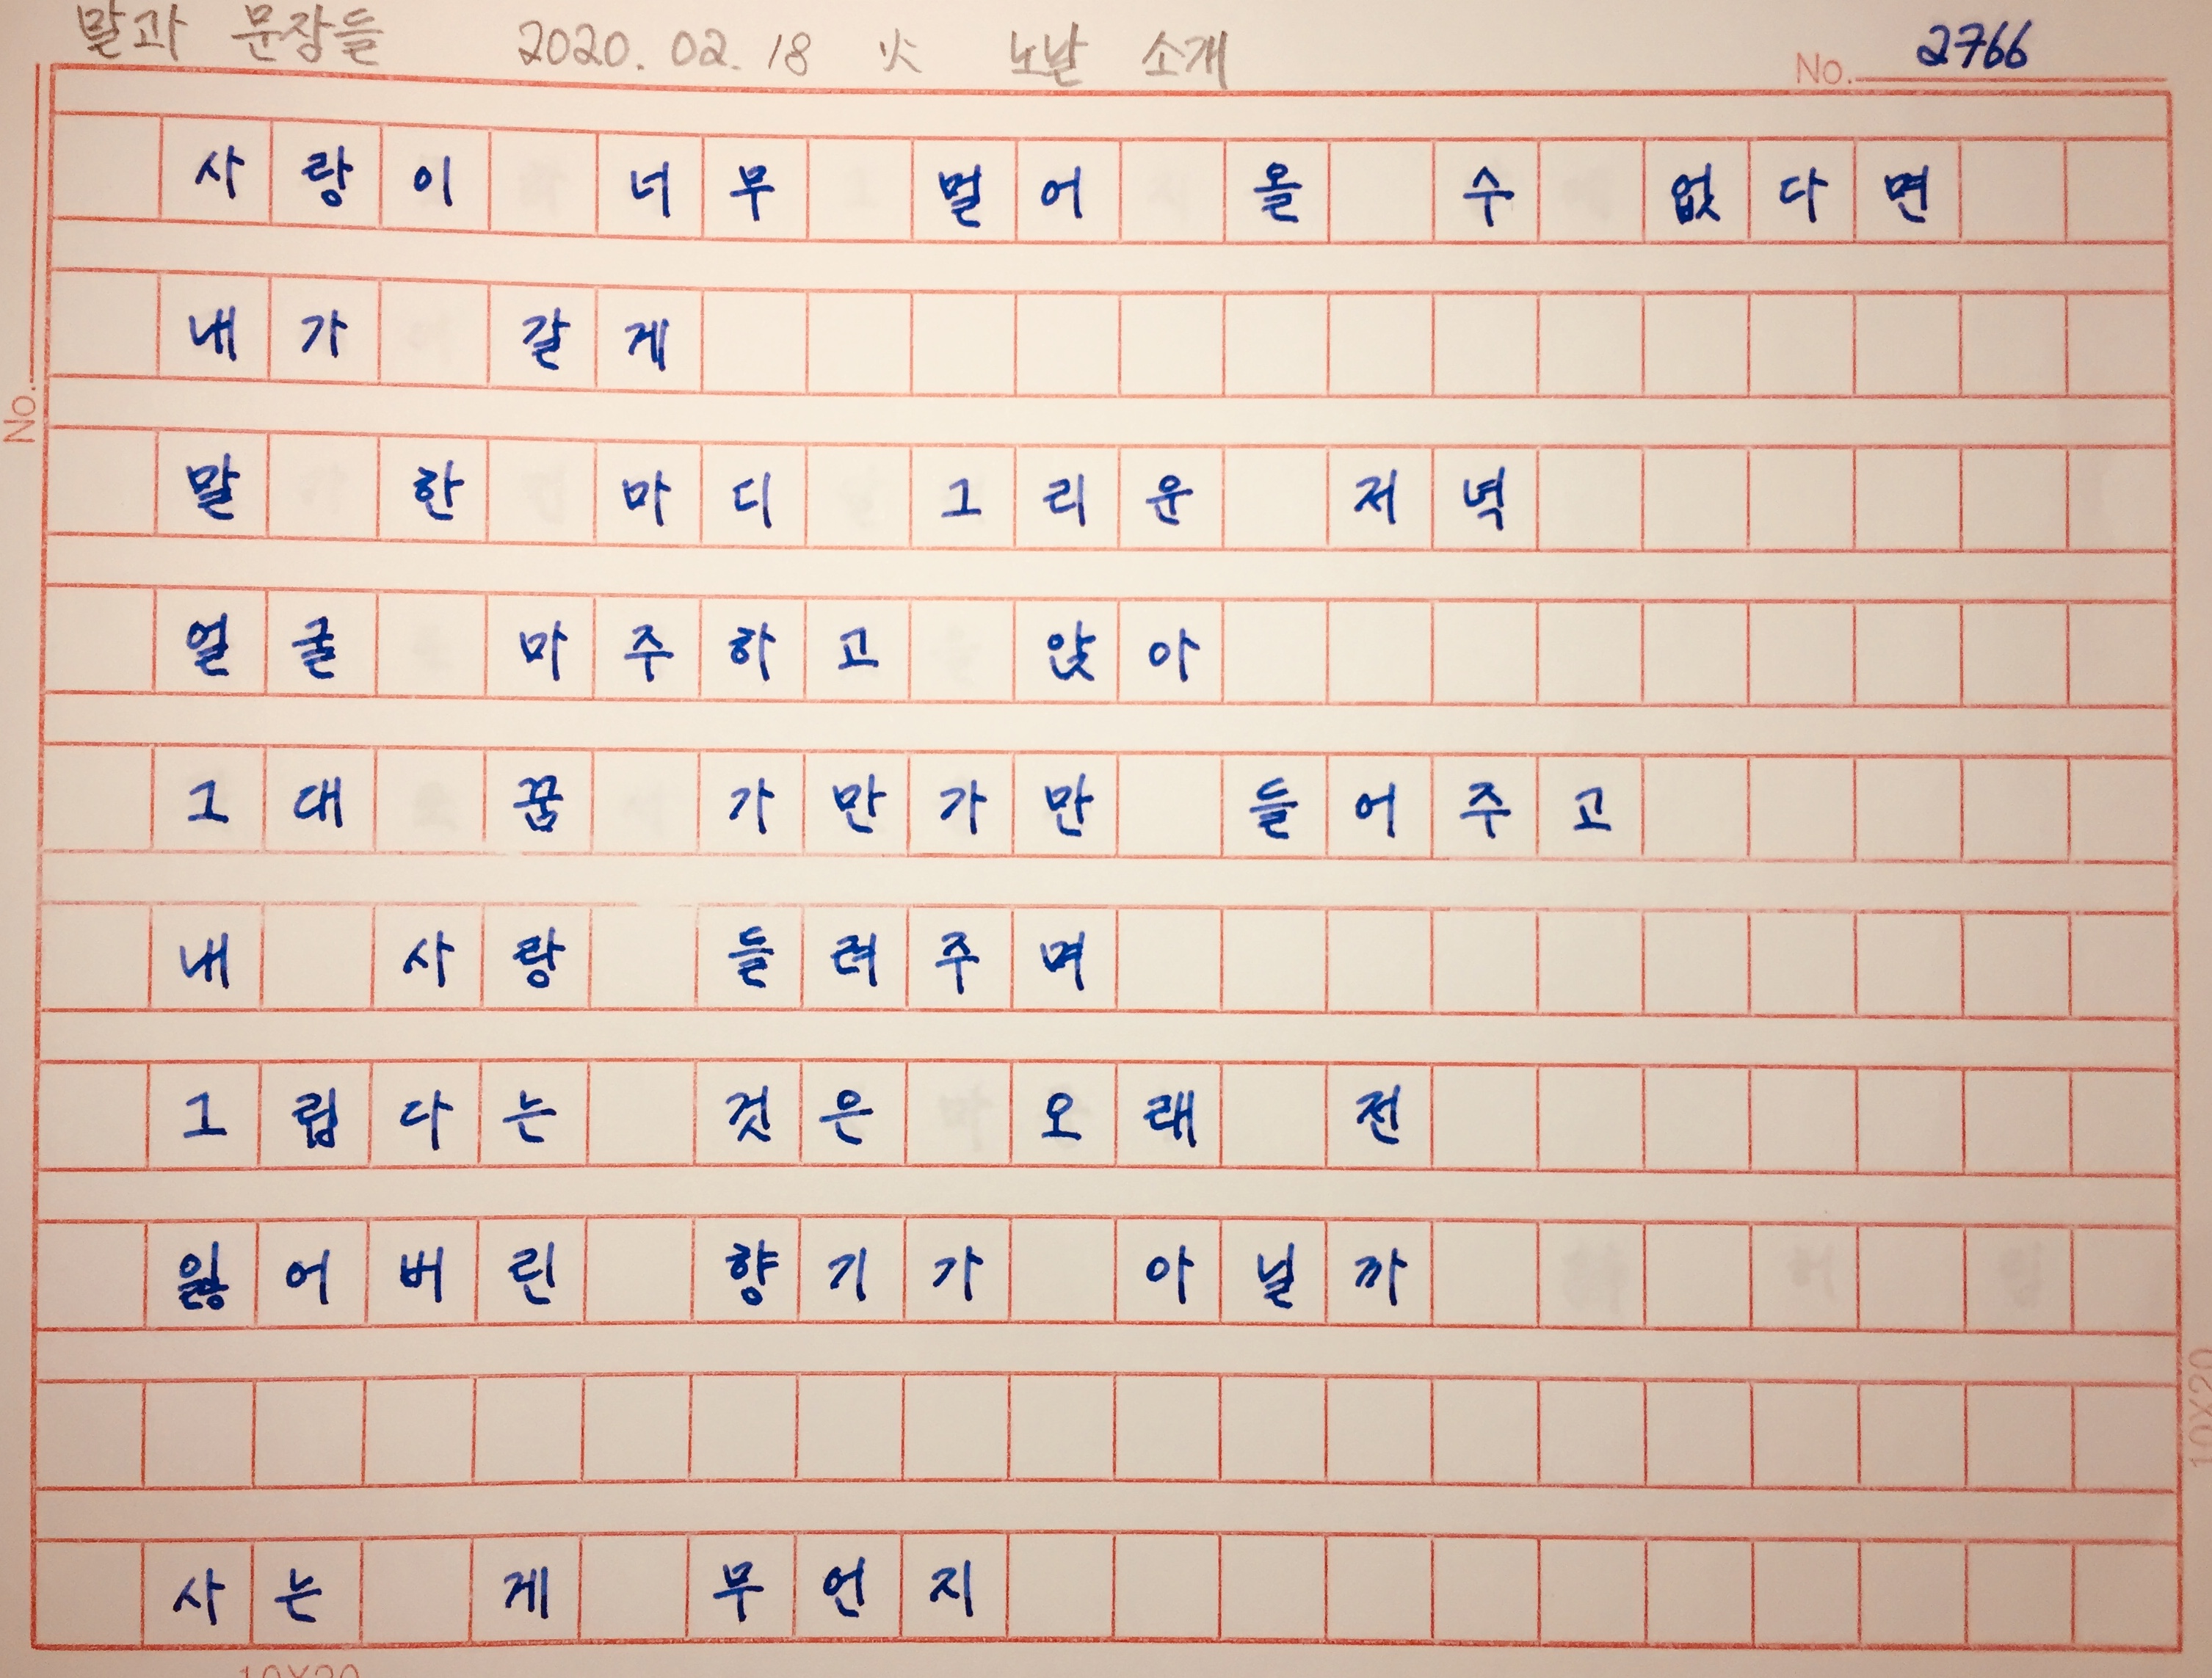 말과 문장들 2020. 02. 18 火 노날 소개 No. 2766
사랑이 너무 멀어 올 수 없다면
내가 갈게
No.
말 한 마디 그리운 저녁
얼굴 마주하고 앉아
그대 꿈 가만가만 들어주고
내 사랑 들려주며
그립다는 것은 오래 전
잃어버린 향기가 아닐까
10X20
사는 게 무언지
10X20